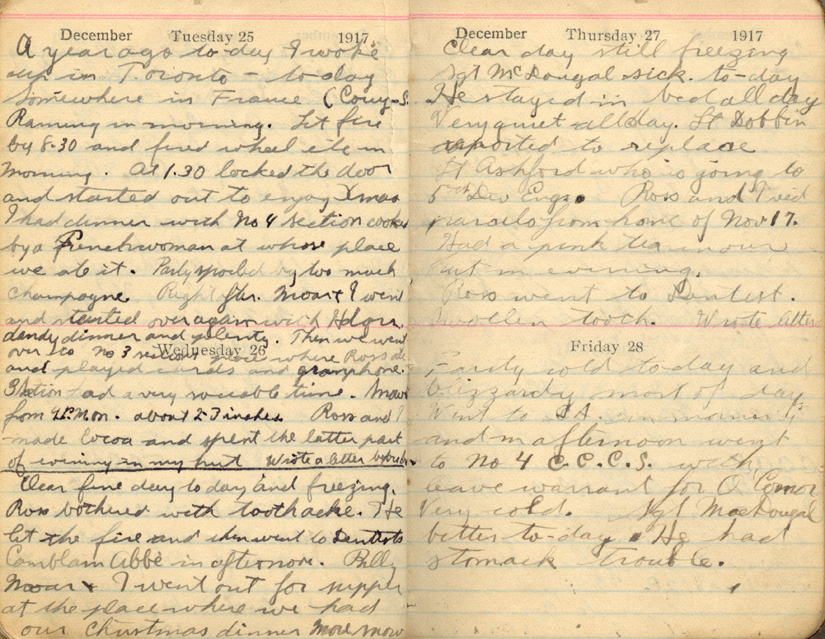 December Tuesday 25 1917
A year ago to-day I woke
up in Toronto - to-day
somewhere in France (Couy-S.
Raming in morning. Lit fire
by 8.30 and fired wheel etc in
morning. At 1.30 locked the door
and started out to enjoy Xmas
I had dinner with No 4 section cooked
by a Frenchwoman at whose place
we ate it. Party spoiled by too much
champagne. Right after. Moar & I went
and started over again with Hdqrs.
dandy dinner and plenty. Then we went
over to No 3 section place where Ross
and played cards and gramphone.
Wednesday 26
3 Section had a very sociable time. Snow
from 4 P.M. on. about 2-3 inches. Ross and I
made Cocoa and spent the latter part
of evening in my hut Wrote a letter
Clear fine day to day and freezing.
Ross bothered with toothache. He
lit the fire and then went to Dentists
Camblain Abbé in afternoon. Billy
Moar & I went out for supper
at the place where we had
our Christmas dinner More snow
December Thursday 27 1917
Clear day still freezing
Sgt McDougal sick to-day
He stayed in bed all day
Very quiet all day. Lt Dobbin
reported to replace
Lt Ashford who is going to
5th Div Engrs. Ross and I rec'd
parcels from home of Nov 17.
Had a pink tea in our
hut in evening.
Ross went to Dentist.
Swollen tooth. Wrote letter
Friday 28
Fairly cold to-day and
blizzardy most of day.
Went to in morning
and in afternoon went
to No 4 C.C.C.S. with
leave warrant for O'Connor
Very cold. Sgt MacDougal
better to-day. He had
stomack trouble.